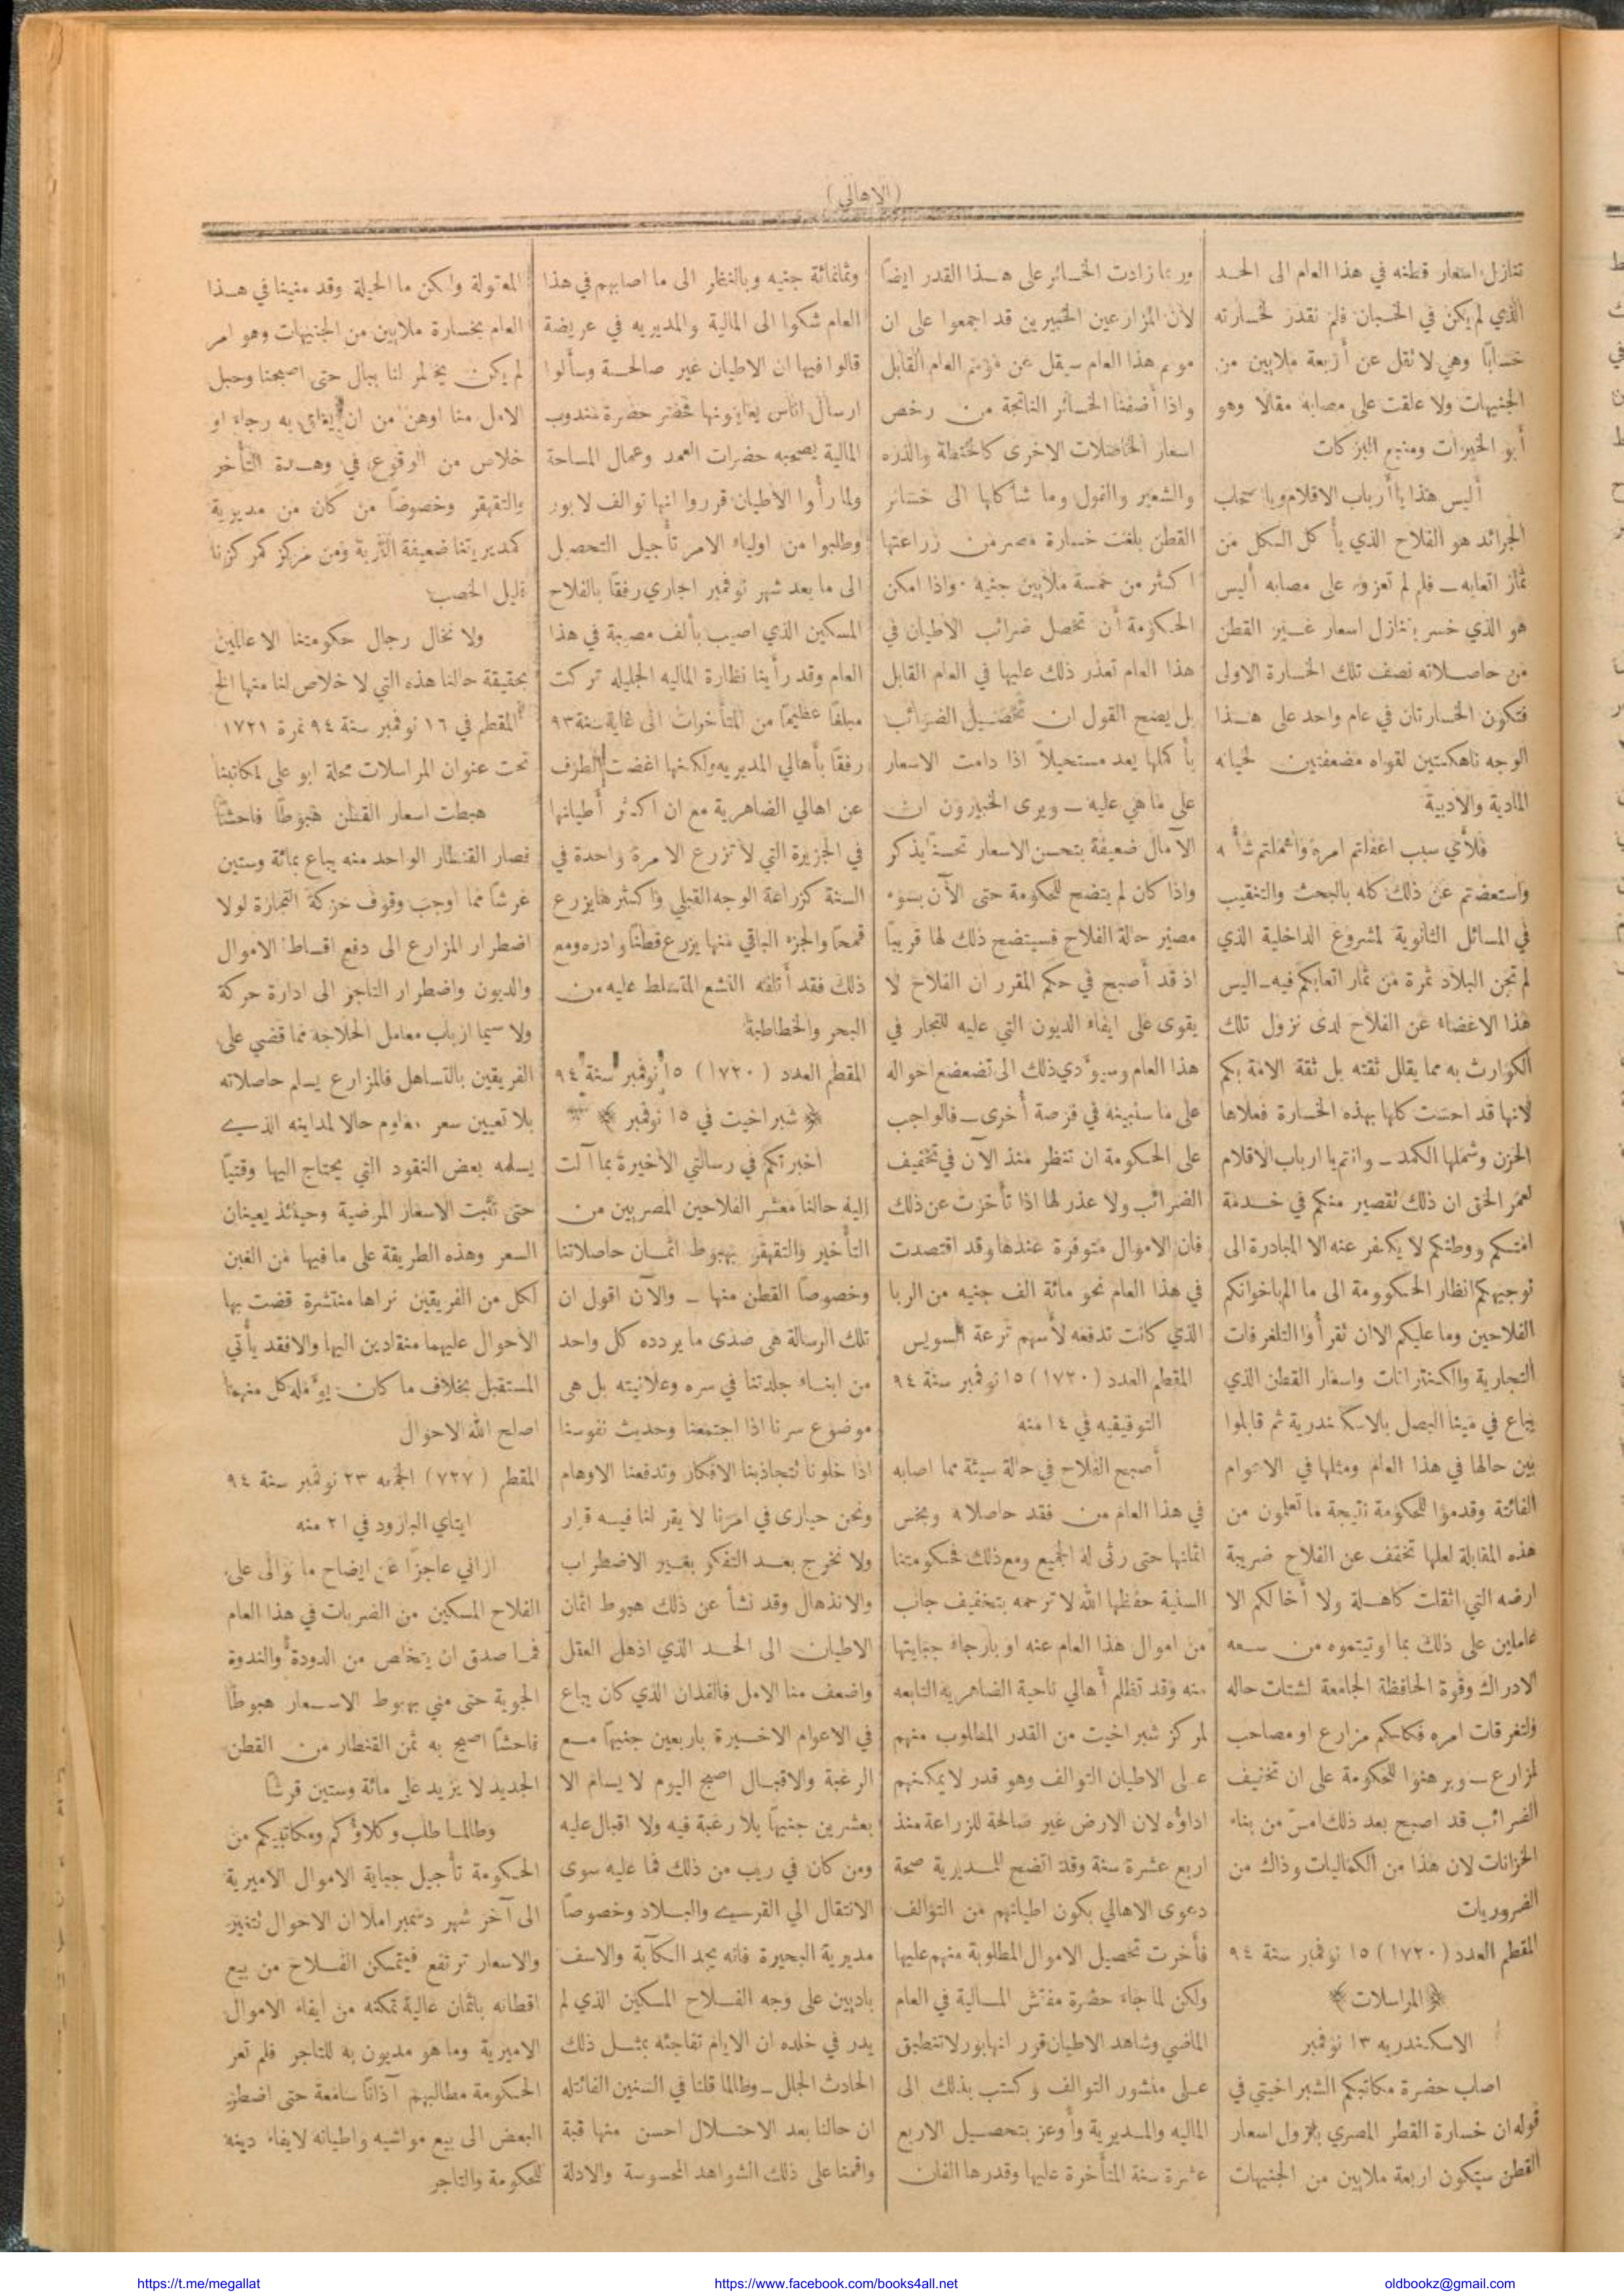 (الاهالي)
تنازل اسعار قطنه في هذا العام الى الحد
الذي لم يكن في الحسبان فلم نقدر لخسارته
حسابًا وهي لا تقل عن أربعة ملايين من
الجنيهات ولا علقت على مصابه مقالا وهو
أبو الخيرات ومنبع البركات
أليس هذا يا أرباب الاقلام ويا صحاب
الجرائد هو الفلاح الذي يأكل الكل من
ثمار اتعابه ــ فلم لم تعزوه على مصابه أليس
هو الذي خسر بتنازل اسعار غير القطن
من حاصلاته نصف تلك الخسارة الاولى
فتكون الخسارتان في عام واحد على هذا
الوجه ناهكتين لقواه مضعفتين لحياته
المادية والأدبية
فلأي سبب اغفلتم امره واهملتم شأنه
واستعضتم عن ذلك كله بالبحث والتنقيب
في المسائل الثانوية لمشروع الداخلية الذي
لم تجن البلاد ثمرة من ثمار اتعابكم فيه ــ اليس
هذا الاغضاء عن الفلاح لدى نزول تلك
الكوارث به مما يقلل ثقته بل ثقة الامة بكم
لانها قد احست كلها بهذه الخسارة فعلاها
الحزن وشملها الكمد ــ وانتم يا ارباب الاقلام
لعمر الحق ان ذلك تقصير منكم في خدمة
امتكم ووطنكم لا يكفر عنه الا المبادرة الى
توجيهكم انظار الحكوومة الى ما الم باخوانكم
الفلاحين وما عليكم الاان تقرأوا التلغرفات
التجارية والكنتراتات واسعار القطن الذي
يباع في مينا البصل بالاسكندرية ثم قابلوا
بين حالها في هذا العام ومثلها في الاعوام
الفائتة وقدموا للحكومة نتيجة ما تعلمون من
هذه المقابلة لعلها تخفف عن الفلاح ضريبة
ارضه التي اثقلت كاهله ولا أخالكم الا
عاملين على ذلك بما اوتيتموه من سعه
الادراك وقوة الحافظة الجامعة لشتات حاله
ولتفرقات امره فكلكم مزارع او مصاحب
لمزارع ــ وبرهنوا للحكومة على ان تخفيف
الضرائب قد اصبح بعد ذلك امسّ من بناء
الخزانات لان هذا من الكماليات وذاك من
الضروريات
المقطم العدد (١٧٢٠) ١٥ نوفمبر سنة ٩٤
﴿ المراسلات ﴾
الاسكندريه ١٣ نوفمبر
اصاب حضرة مكاتبكم الشبراخيتي في
قوله ان خسارة القطر المصري بنزول اسعار
القطن ستكون اربعة ملايين من الجنيهات
وربما زادت الخسائر على هذا القدر ايضًا
لأن المزارعين الخبيرين قد اجمعوا على ان
موسم هذا العام سيقل عن موسم العام القابل
واذا أضفنا الخسائر الناتجة من رخص
اسعار الحاصلات الاخرى كالحنطة والذره
والشعير والفول وما شاكلها الى خسائر
القطن بلغت خسارة مصر من زراعتها
اكثر من خمسة ملايين جنيه . واذا امكن
الحكومة أن تحصل ضرائب الأطيان في
هذا العام تعذر ذلك عليها في العام القابل
بل يصح القول ان تحصيل الضرائب
بأكملها يعد مستحيلاً اذا دامت الاسعار
على ما هي عليه ــ ويرى الخبيرون ان
الآمال ضعيفة بتحسن الاسعار تحسنًا يذكر
واذا كان لم يتضح للحكومة حتى الآن بسوء
مصير حالة الفلاح فسيتضح ذلك لها قريبًا
اذ قد أصبح في حكم المقرر ان الفلاح لا
يقوى على ايفاء الديون التي عليه للتجار في
هذا العام وسيؤدي ذلك الى تضعضع احواله
على ما سنبينه في فرصة أخرى ــ فالواجب
على الحكومة ان تنظر منذ الآن في تخفيف
الضرائب ولا عذر لها اذا تأخرت عن ذلك
فان الاموال متوفرة عندها وقد اقتصدت
في هذا العام نحو مائة الف جنيه من الربا
الذي كانت تدفعه لأسهم ترعة السويس
المقطم العدد (١٧٢٠) ١٥ نوفمبر سنة ٩٤
التوفيقيه في ١٤ منه
أصبح الفلاح في حالة سيئة مما اصابه
في هذا العام من فقد حاصلاته وبخس
اثمانها حتى رثى له الجميع ومع ذلك فحكومتنا
السنية حفظها الله لا ترحمه بتخفيف جانب
من اموال هذا العام عنه او بارجاء جبايتها
منه وقد تظلم أهالي ناحية الضاهريه التابعه
لمركز شبراخيت من القدر المطلوب منهم
على الاطيان التوالف وهو قدر لا يمكنهم
اداؤه لان الارض غير صالحة للزراعة منذ
اربع عشرة سنة وقد اتضح للمديرية صحة
دعوى الاهالي بكون اطيانهم من التوالف
فأخرت تحصيل الاموال المطلوبة منهم عليها
ولكن لما جاء حضرة مفتش المالية في العام
الماضي وشاهد الاطيان قرر انها بور لا تنطبق
على منشور التوالف وكتب بذلك الى
الماليه والمديرية وأوعز بتحصيل الاربع
عشرة سنة المتأخرة عليها وقدرها الفان
وثمانمائة جنيه وبالنظر الى ما اصابهم في هذا
العام شكوا الى المالية والمديريه في عريضة
قالوا فيها ان الاطيان غير صالحة وسألوا
ارسال اناس يعاينونها فحضر حضرة مندوب
المالية يصحبه حضرات العمد وعمال المساحة
ولما رأوا الأطيان قرروا انها توالف لا بور
وطلبوا من اولياء الامر تأجيل التحصيل
الى ما بعد شهر نوفمبر الجاري رفقًا بالفلاح
المسكين الذي اصيب بألف مصيبة في هذا
العام وقد رأينا نظارة الماليه الجليله تركت
مبلغًا عظيمًا من المتأخرات الى غاية سنة ٩٣
رفقًا بأهالي المديريه ولكنها اغضت الطرف
عن اهالي الضاهرية مع ان اكثر أطيانها
في الجزيرة التي لا تزرع الا مرة واحدة في
السنة كزراعة الوجه القبلي واكثرها يزرع
قمحًا والجزء الباقي منها يزرع قطنًا وادره ومع
ذلك فقد أتلفه النشع المتسلط عليه من
البحر والخطاطبة
المقطم العدد (١٧٢٠) ١٥ نوفمبر سنة ٩٤
﴿ شبراخيت في ١٥ نوفمبر ﴾
أخبرتكم في رسالتي الأخيرة بما آلت
اليه حالنا معشر الفلاحين المصريين من
التأخير والتقهقر بهبوط اثمان حاصلاتنا
وخصوصًا القطن منها ــ والآن اقول ان
تلك الرسالة هي صدى ما يردده كل واحد
من ابناء جلدتنا في سره وعلانيته بل هي
موضوع سرنا اذا اجتمعنا وحديث نفوسنا
اذا خلونا تتجاذبنا الافكار وتدفعنا الاوهام
ونحن حيارى في امرنا لا يقر لنا فيه قرار
ولا نخرج بعد التفكر بغير الاضطراب
والانذهال وقد نشأ عن ذلك هبوط اثمان
الاطيان الى الحد الذي اذهل العقل
واضعف منا الامل فالفدان الذي كان يباع
في الاعوام الاخيرة باربعين جنيهًا مع
الرغبة والاقبال اصبح اليوم لا يسام الا
بعشرين جنيهًا بلا رغبة فيه ولا اقبال عليه
ومن كان في ريب من ذلك فما عليه سوى
الانتقال الى القرى والبلاد وخصوصًا
مديرية البحيرة فانه يجد الكآبة والاسف
باديين على وجه الفلاح المسكين الذي لم
يدر في خلده ان الايام تفاجئه بمثل ذلك
الحادث الجلل ــ وطالما قلنا في السنين الفائتله
ان حالنا بعد الاحتلال احسن منها قبة
واقمنا على ذلك الشواهد المحسوسة والادلة
المقبولة ولكن ما الحيلة وقد منينا في هذا
العام بخسارة ملايين من الجنيهات وهو امر
لم يكن يخطر لنا ببال حتى اصبحنا وحبل
الامل منا اوهن من ان يناط به رجاء او
خلاص من الوقوع في وهدة التأخر
والتقهقر وخصوصًا من كان من مديرية
كمديريتنا ضعيفة التربة ومن مركز كمركزنا
قليل الخصب
ولا نخال رجال حكومتنا الا عالمين
بحقيقة حالنا هذه التي لا خلاص لنا منها الخ
المقطم في ١٦ نوفمبر سنة ٩٤ نمرة ١٧٢١
تحت عنوان المراسلات محلة ابو على لمكاتبنا
هبطت اسعار القطن هبوطًا فاحشًا
فصار القنطار الواحد منه يباع بمائة وستين
غرشًا مما اوجب وقوف حركة التجارة لولا
اضطرار المزارع الى دفع اقساط الاموال
والديون واضطرار التاجر الى ادارة حركة
ولا سيما ارباب معامل الحلاجة مما قضي على
الفريقين بالتساهل فالمزارع يسلم حاصلاته
بلا تعيين سعر معلوم حالا لمداينه الذي
يسلمه بعض النقود التي يحتاج اليها وقتيًا
حتى تثبت الاسعار المرضية وحينئذ يعينان
السعر وهذه الطريقة على ما فيها من الغبن
لكل من الفريقين نراها منتشرة قضت بها
الأحوال عليهما منقادين اليها والا فقد يأتي
المستقبل بخلاف ما كان يؤمله كل منهما
اصلح الله الاحوال
المقطم (٧٢٧) الجمعه ٢٣ نوفمبر سنة ٩٤
ايتاي البارود في ٢١ منه
اراني عاجزًا عن ايضاح ما توالى على
الفلاح المسكين من الضربات في هذا العام
فما صدق ان يتخلص من الدودة والندوة
الجوية حتى مني بهبوط الاسعار هبوطًا
فاحشًا اصبح به ثمن القنطار من القطن
الجديد لا يزيد على مائة وستين قرشًا
وطالما طلب وكلاؤكم ومكاتبيكم من
الحكومة تأجيل جباية الاموال الاميرية
الى آخر شهر دسمبر املا ان الاحوال تتغير
والاسعار ترتفع فيتمكن الفلاح من بيع
اقطانه باثمان غالية تمكنه من ايفاء الاموال
الاميرية وما هو مديون به للتاجر فلم تعر
الحكومة مطالبهم آذانًا سامعة حتى اضطر
البعض الى بيع مواشيه واطيانه لايفاء دينه
للحكومة والتاجر
https://t.me/megallat
https://www.facebook.com/books4all.net
oldbookz@gmail.com